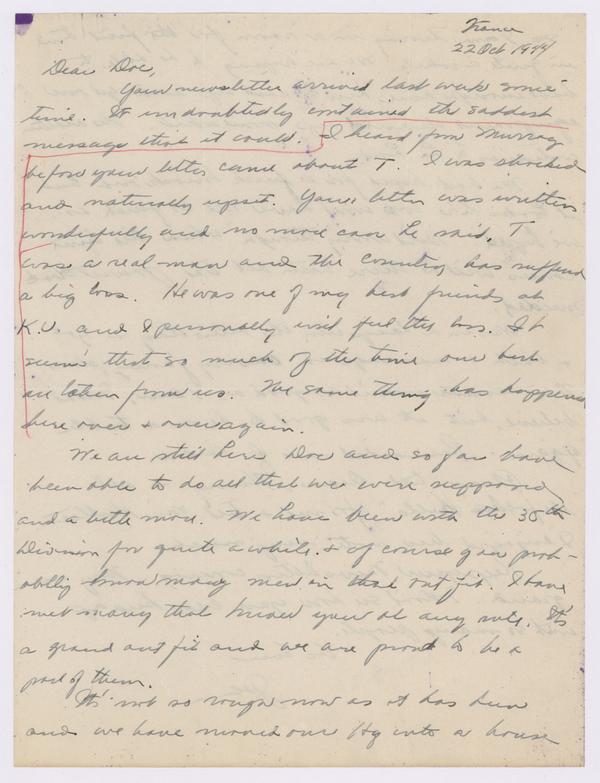 France
22 Oct 1944
Dear Doc,
Your newsletter arrived last week some
time. It undoubtedly contained the saddest
message that it could. I heard from Murray
before your letter came about T. I was shocked
and naturally upset. Your letter was written
wonderfully and no more can be said. T
was a real man and the country has suffered
a big loss. He was one of my best friends at
K.U. and I personally will feel the loss. It
seems that so much of the time our best
are taken from us. The same thing has happened
here over + over again.
We are still here Doc and so far have
been able to do all that we were supposed
and a little more. We have been with the 35th
Division for quite a while. + of course you prob-
ably know many men in that outfit. I have
met many that know you at any rate. It's
a grand outfit and we are proud to be a
part of them.
It's not so rough now as it has been
and we have moved our Hq into a house